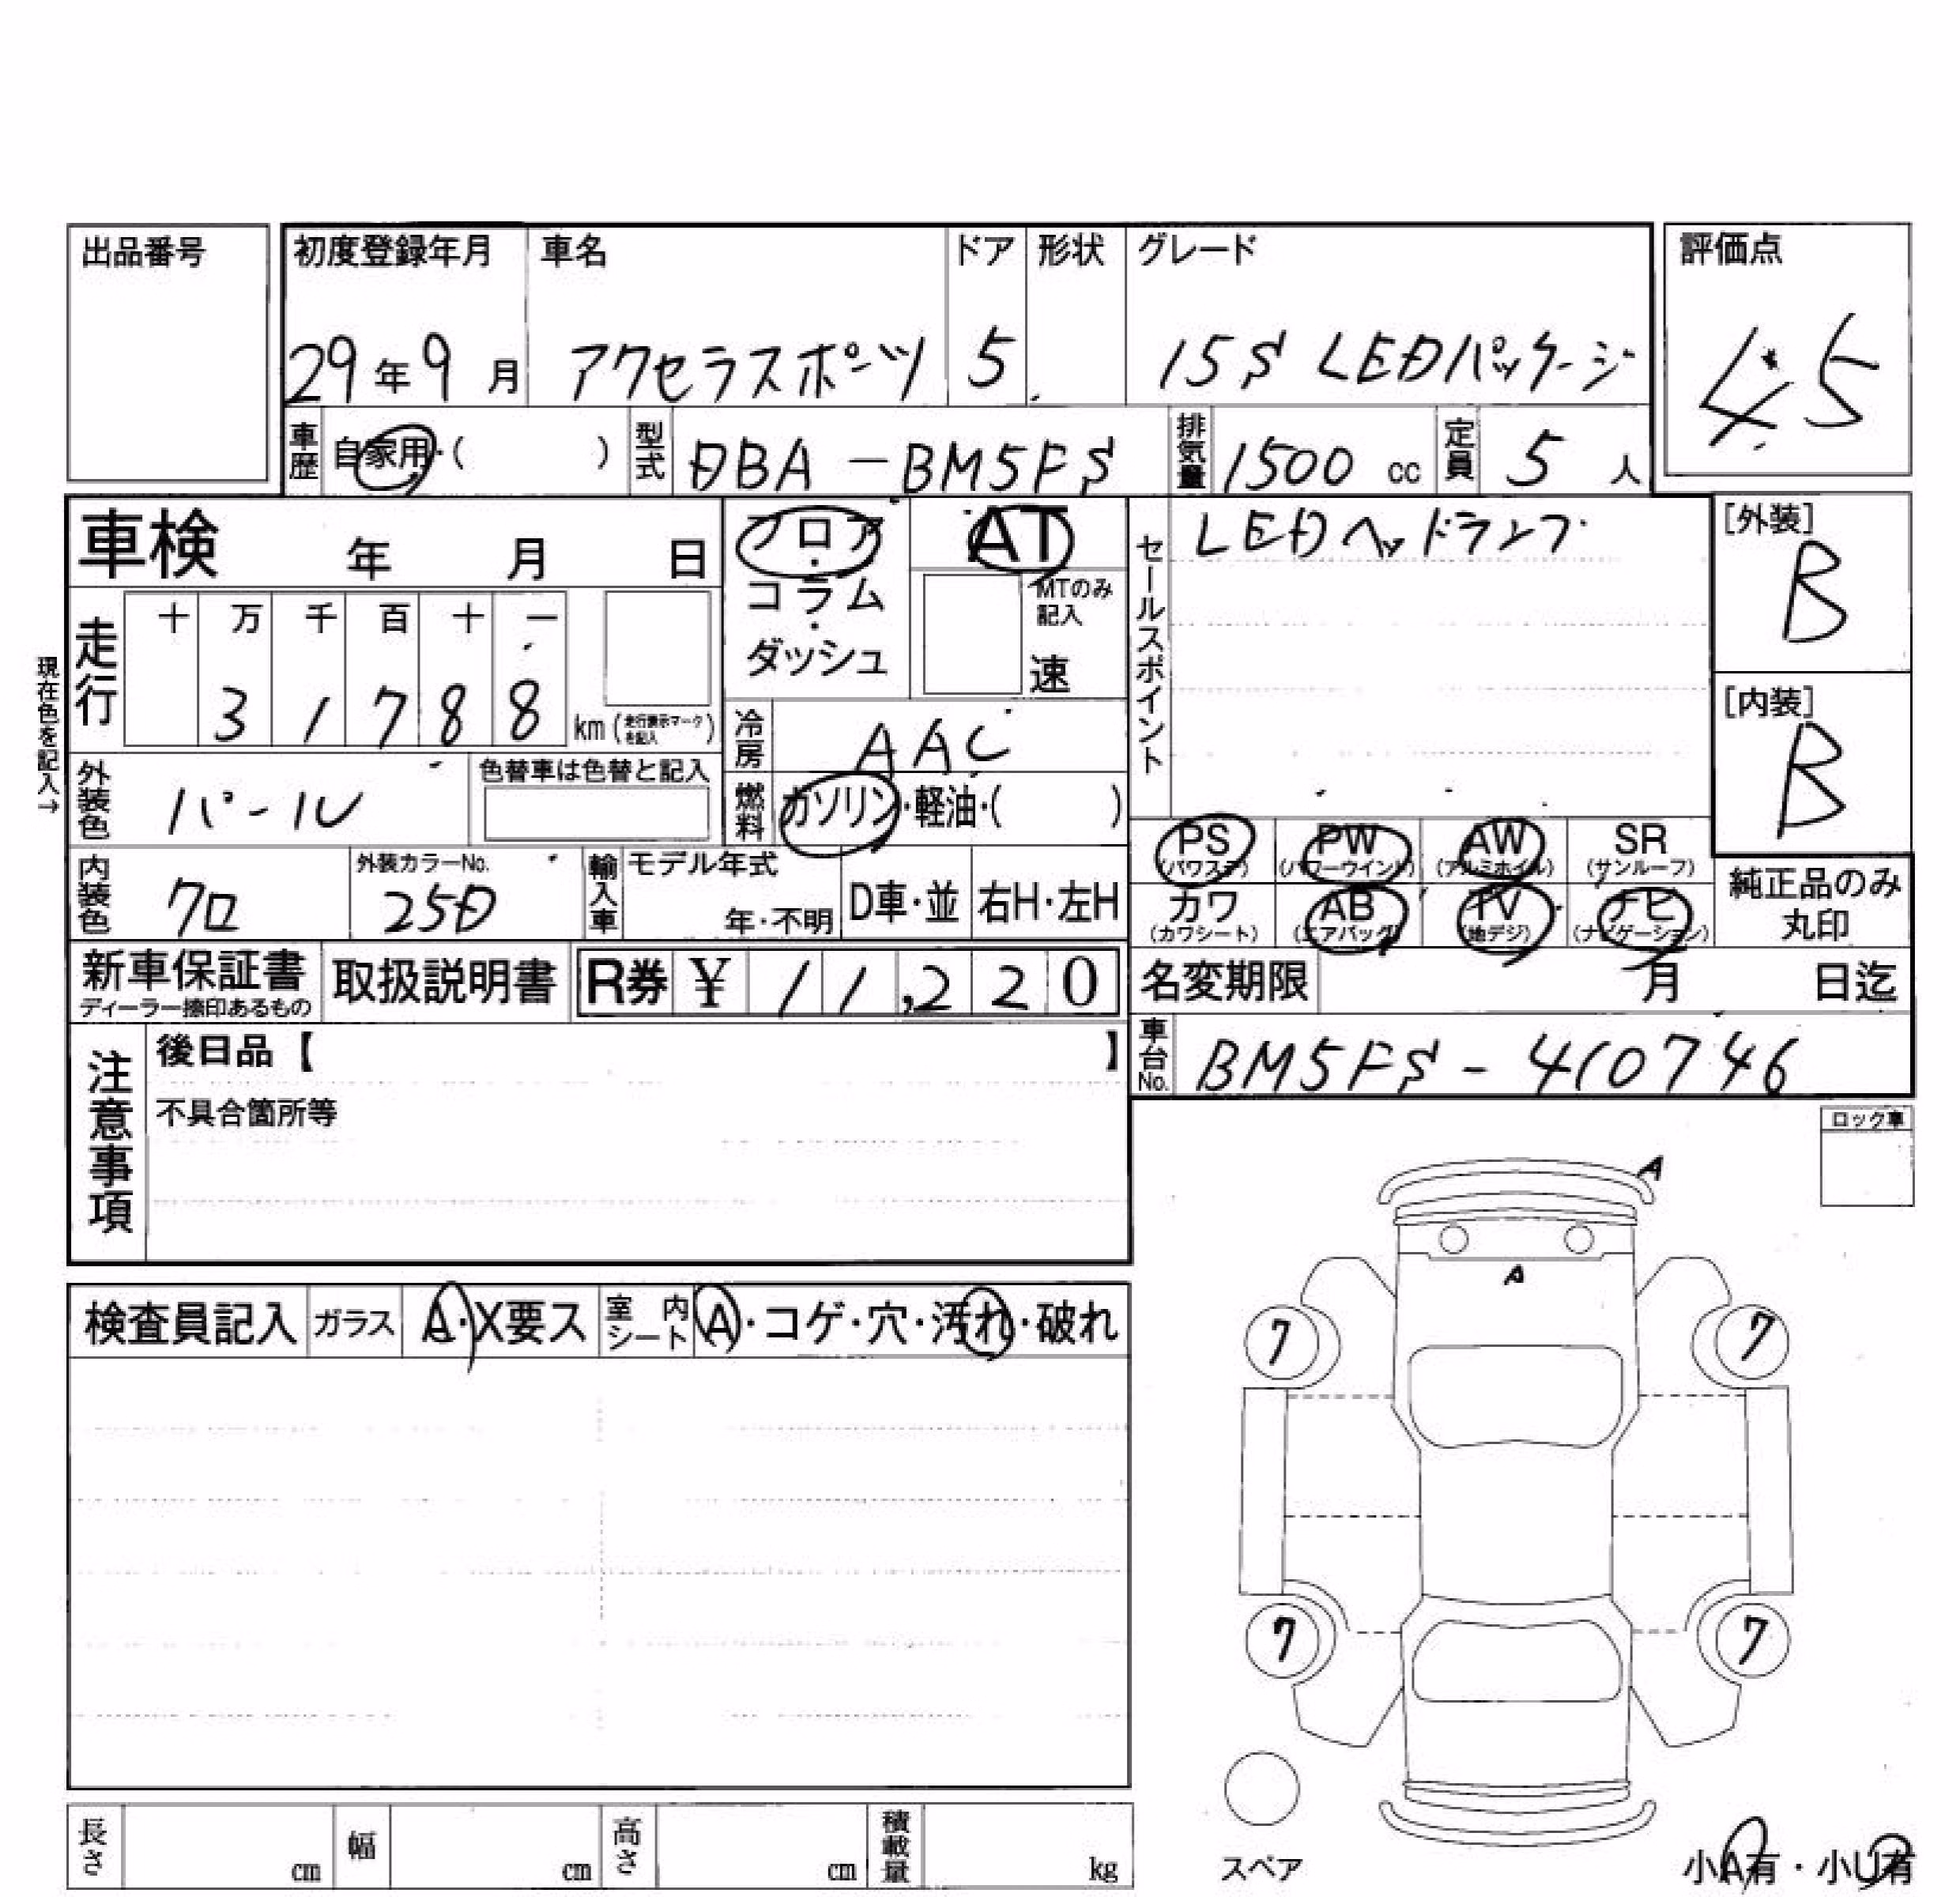 出品番号
初度登録年月 車名 ドア 形状 グレード 評価点
29年9月 アクセラスポーツ 5 15S LEDパッケージ 4.5
車歴 自家用・( ) 型式 DBA-BM5FS 排気量 1500 cc 定員 5 人
車検 年 月 日
フロア・コラム・ダッシュ
AT
MTのみ記入
速
セールスポイント
LEDヘッドランプ
[外装]
B
[内装]
B
現在色を記入→
走行 十 万 千 百 十 一
3 1 7 8 8 km (走行表示マークを記入)
冷房 AAC
外装色 パール 色替車は色替と記入
燃料 ガソリン・軽油・( )
PS (パワステ) PW (パワーウインド) AW (アルミホイル) SR (サンルーフ)
カワ (カワシート) AB (エアバッグ) TV (地デジ) ナビ (ナビゲーション)
純正品のみ丸印
内装色 クロ 外装カラーNo. 25D 輸入車 モデル年式 年・不明 D車・並 右H・左H
新車保証書 ディーラー捺印あるもの 取扱説明書 R券 ¥ 11,220
名変期限 月 日迄
車台No. BM5FS-410746
注意事項
後日品【 】
不具合箇所等
ロック車
A
A
検査員記入 ガラス A・X要ス 室内シート A・コゲ・穴・汚れ・破れ
7 7
7 7
スペア
小A有・小U有
長さ cm 幅 cm 高さ cm 積載量 kg